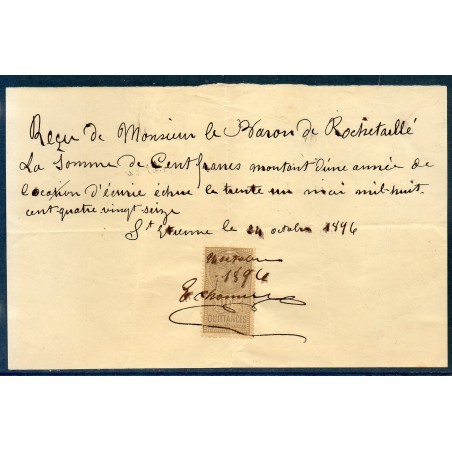 Reçu de Monsieur le Baron de Rochetaillé
La Somme de Cent francs montant d'une année de
location d'écurie échue le trente un mai mil-huit-
cent quatre vingt-seize
St Etienne le 24 octobre 1896
24 octobre
1896
QUITTANCES